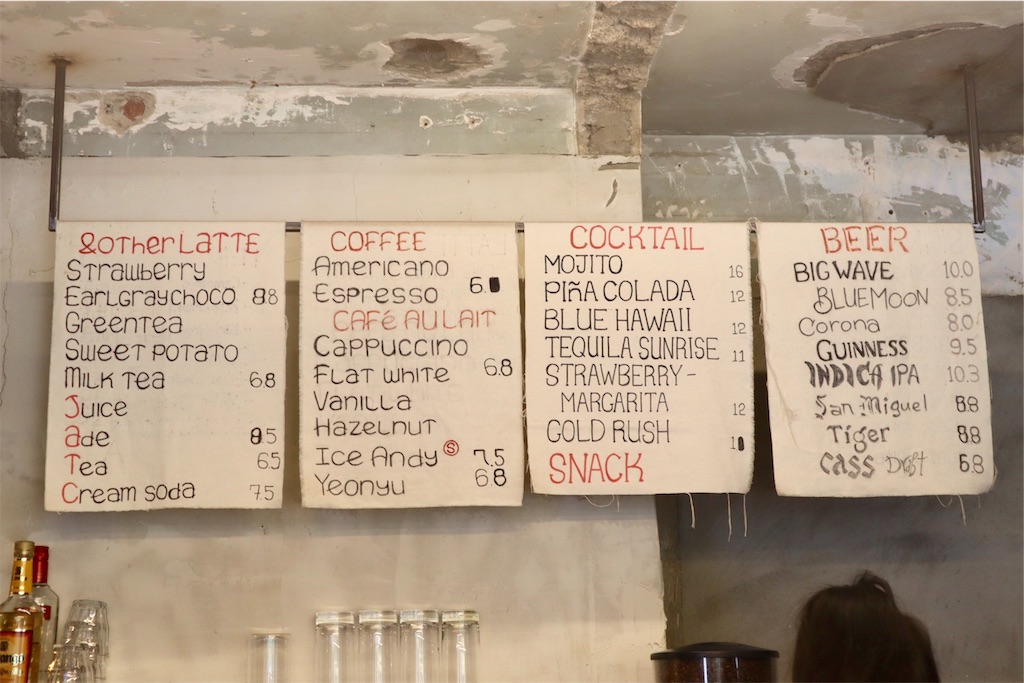 &OTHER LATTE
STRAWBERRY
EARLGRAYCHOCO 8.8
GREENTEA
SWEET POTATO
MILK TEA 6.8
JUICE
ade 9.5
TEA 6.5
Cream soda 7.5
COFFEE
AMERICANO
ESPRESSO 6.0
CAFé AU LAIT
CAPPUCCINO
FLAT WHITE 6.8
VANILLA
HAZELNUT
ICE ANDY Ⓢ 7.5
YEONYU 6.8
COCKTAIL
MOJITO 16
PIñA COLADA 12
BLUE HAWAII 12
TEQUILA SUNRISE 11
STRAWBERRY-
MARGARITA 12
GOLD RUSH
SNACK
BEER
BIG WAVE 10.0
BLUEMOON 8.5
Corona 8.0
GUINNESS 9.5
INDICA IPA 10.3
San Miguel 8.8
Tiger 8.8
CASS 6.8